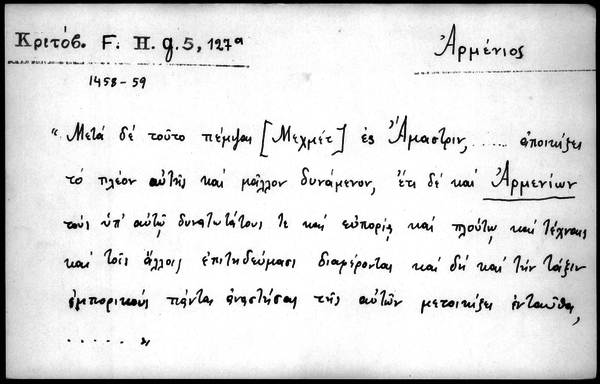 Κριτόβ. F. H. g. 5, 127ª
Ἀρμένιος
1458-59
" Μετὰ δὲ τοῦτο πέμψας [Μεχμέτ] ἐς Ἄμαστριν, ..... ἀποικίζει
τὸ πλέον αὐτῆς καὶ μᾶλλον δυνάμενον, ἔτι δὲ καὶ Ἀρμενίων
τοὺς ὑπ' αὐτῷ δυνατωτάτους τε καὶ εὐπορίᾳ καὶ πλούτῳ καὶ τέχναις
καὶ τοῖς ἄλλοις ἐπιτηδεύμασι διαφέροντας καὶ δὴ καὶ τὴν τάξιν
ἐμπορικοὺς πάντας ἀναστήσας τῆς αὐτῶν μετοικίζει ἐνταῦθα,
..... "